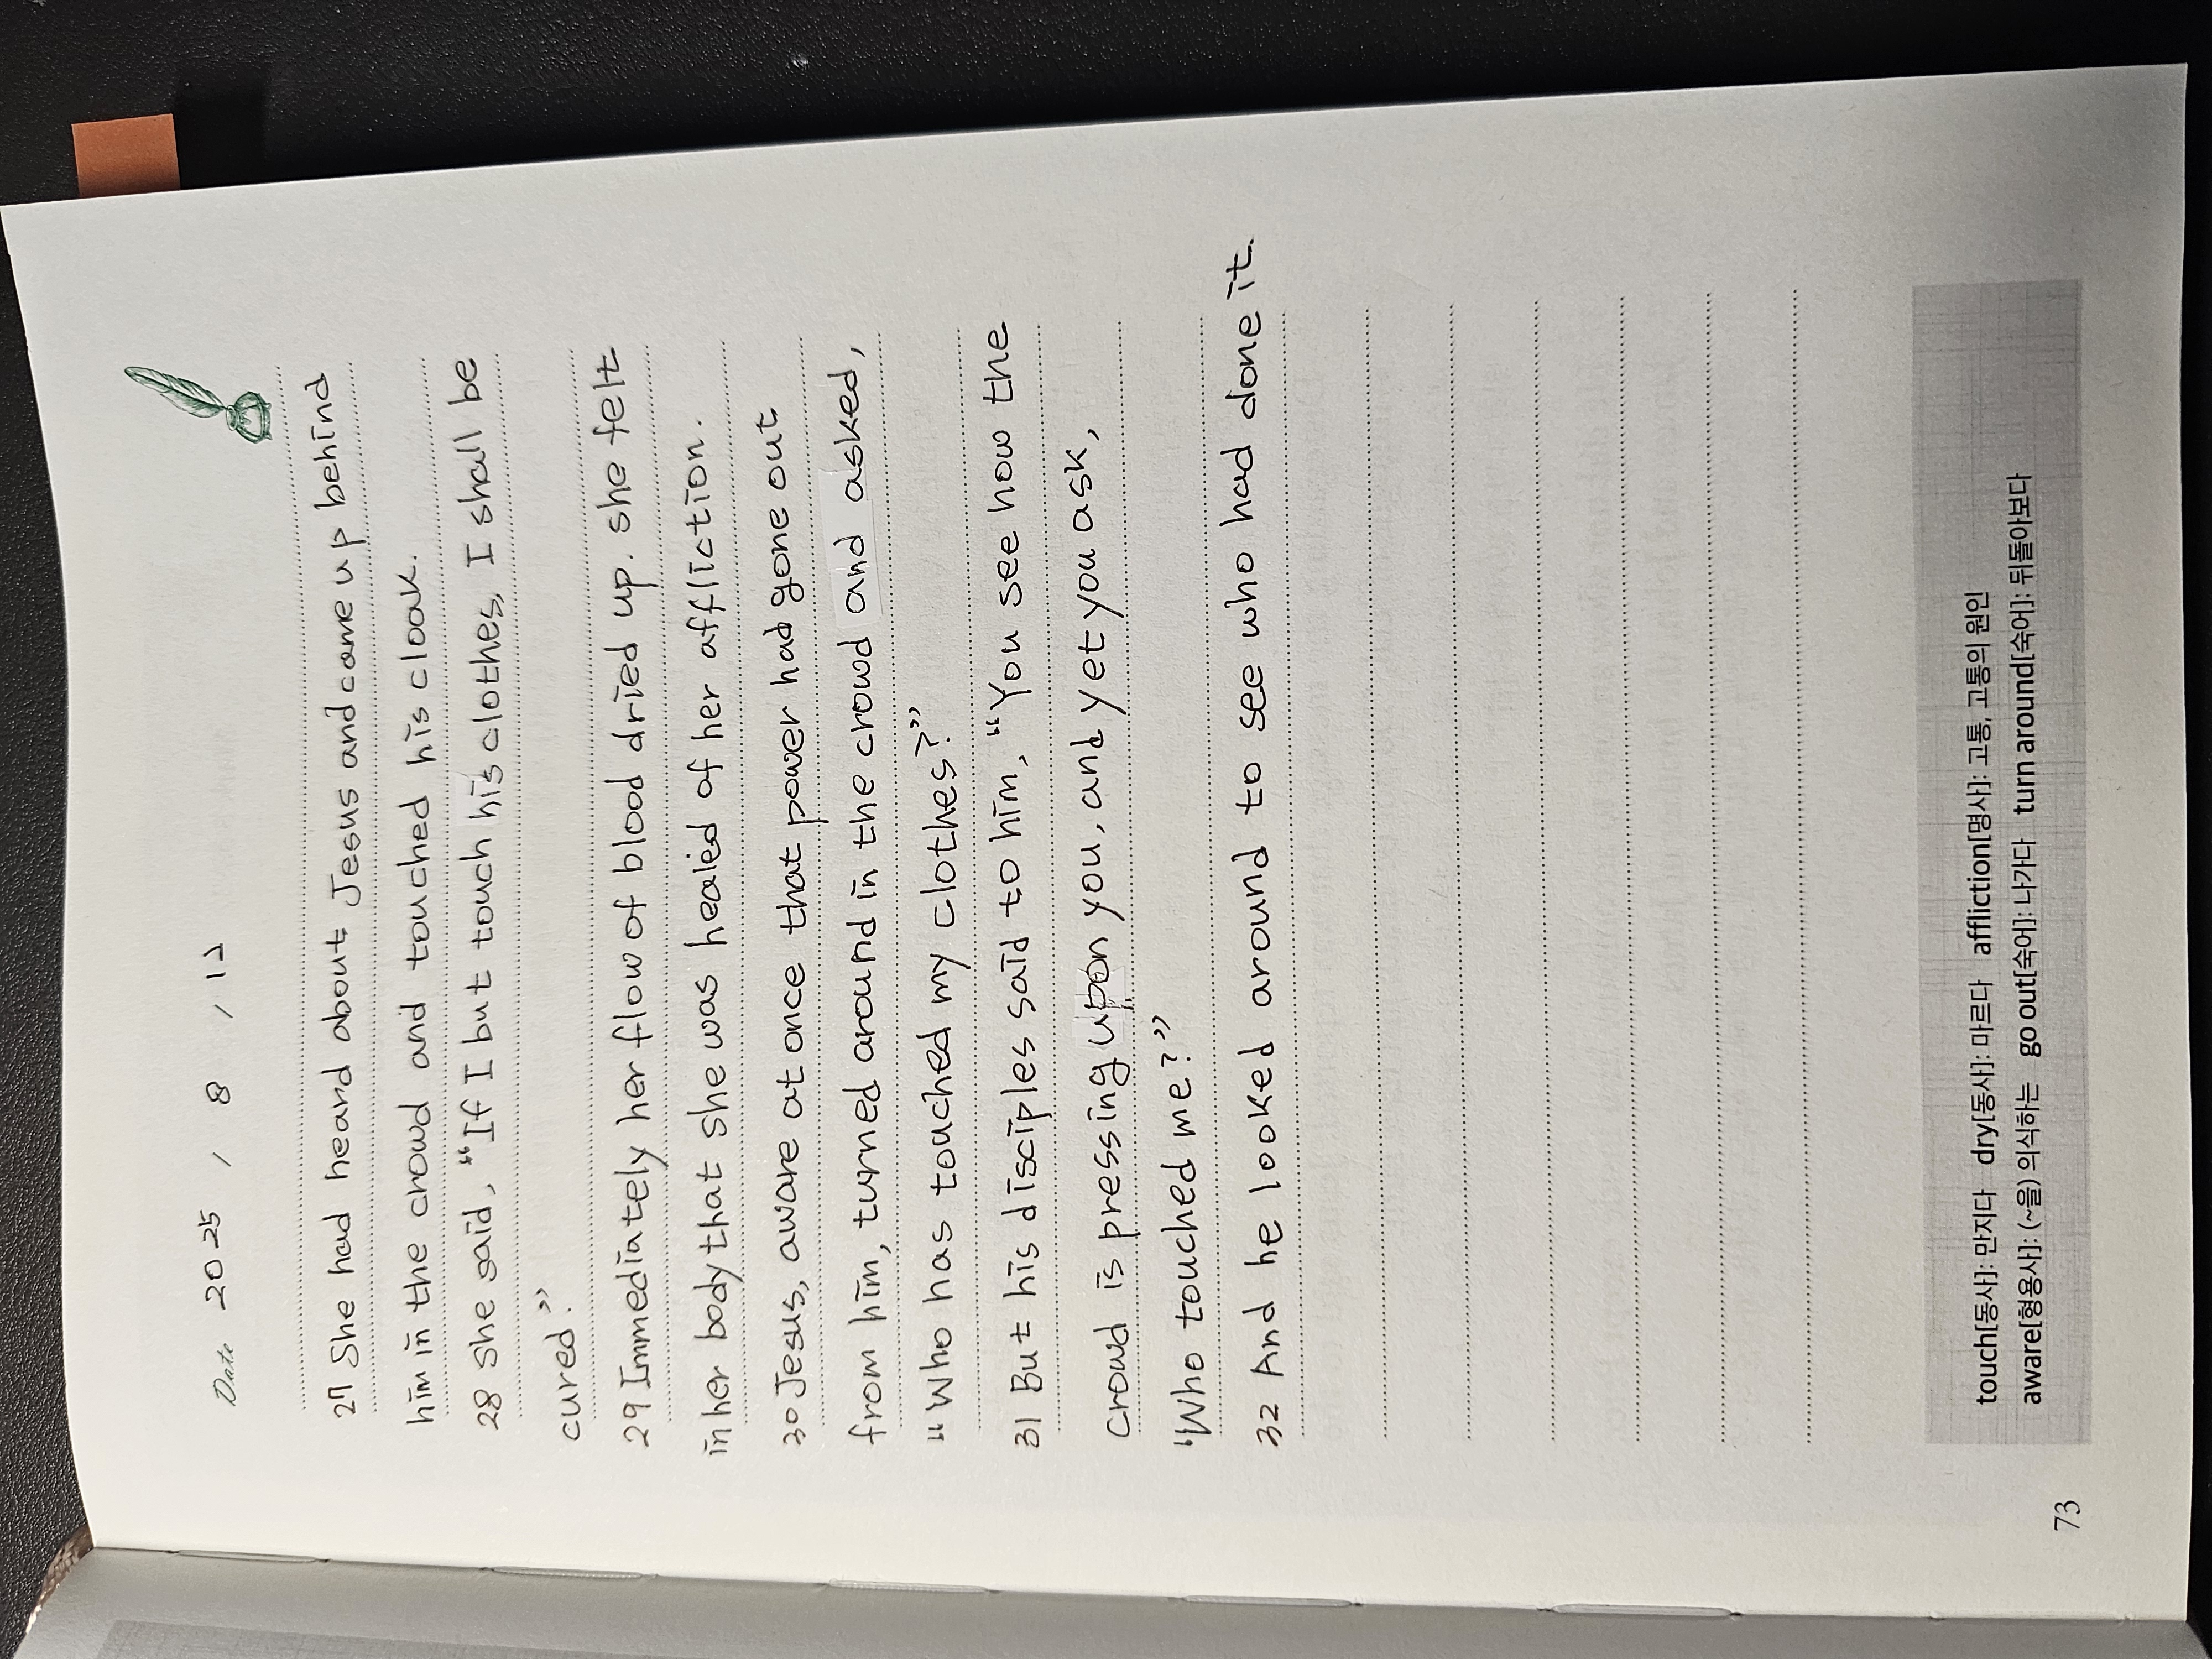 Date 2025 / 8 / 12
27 She had heard about Jesus and came up behind
him in the crowd and touched his cloak.
28 She said, "If I but touch his clothes, I shall be
cured."
29 Immediately her flow of blood dried up. she felt
in her body that she was healed of her affliction.
30 Jesus, aware at once that power had gone out
from him, turned around in the crowd and asked,
"Who has touched my clothes?"
31 But his disciples said to him, "You see how the
crowd is pressing upon you, and yet you ask,
'Who touched me?"
32 And he looked around to see who had done it.
touch[동사]: 만지다 dry[동사]: 마르다 affliction[명사]: 고통, 고통의 원인
aware[형용사]: (~을) 의식하는 go out[숙어]: 나가다 turn around[숙어]: 뒤돌아보다
73